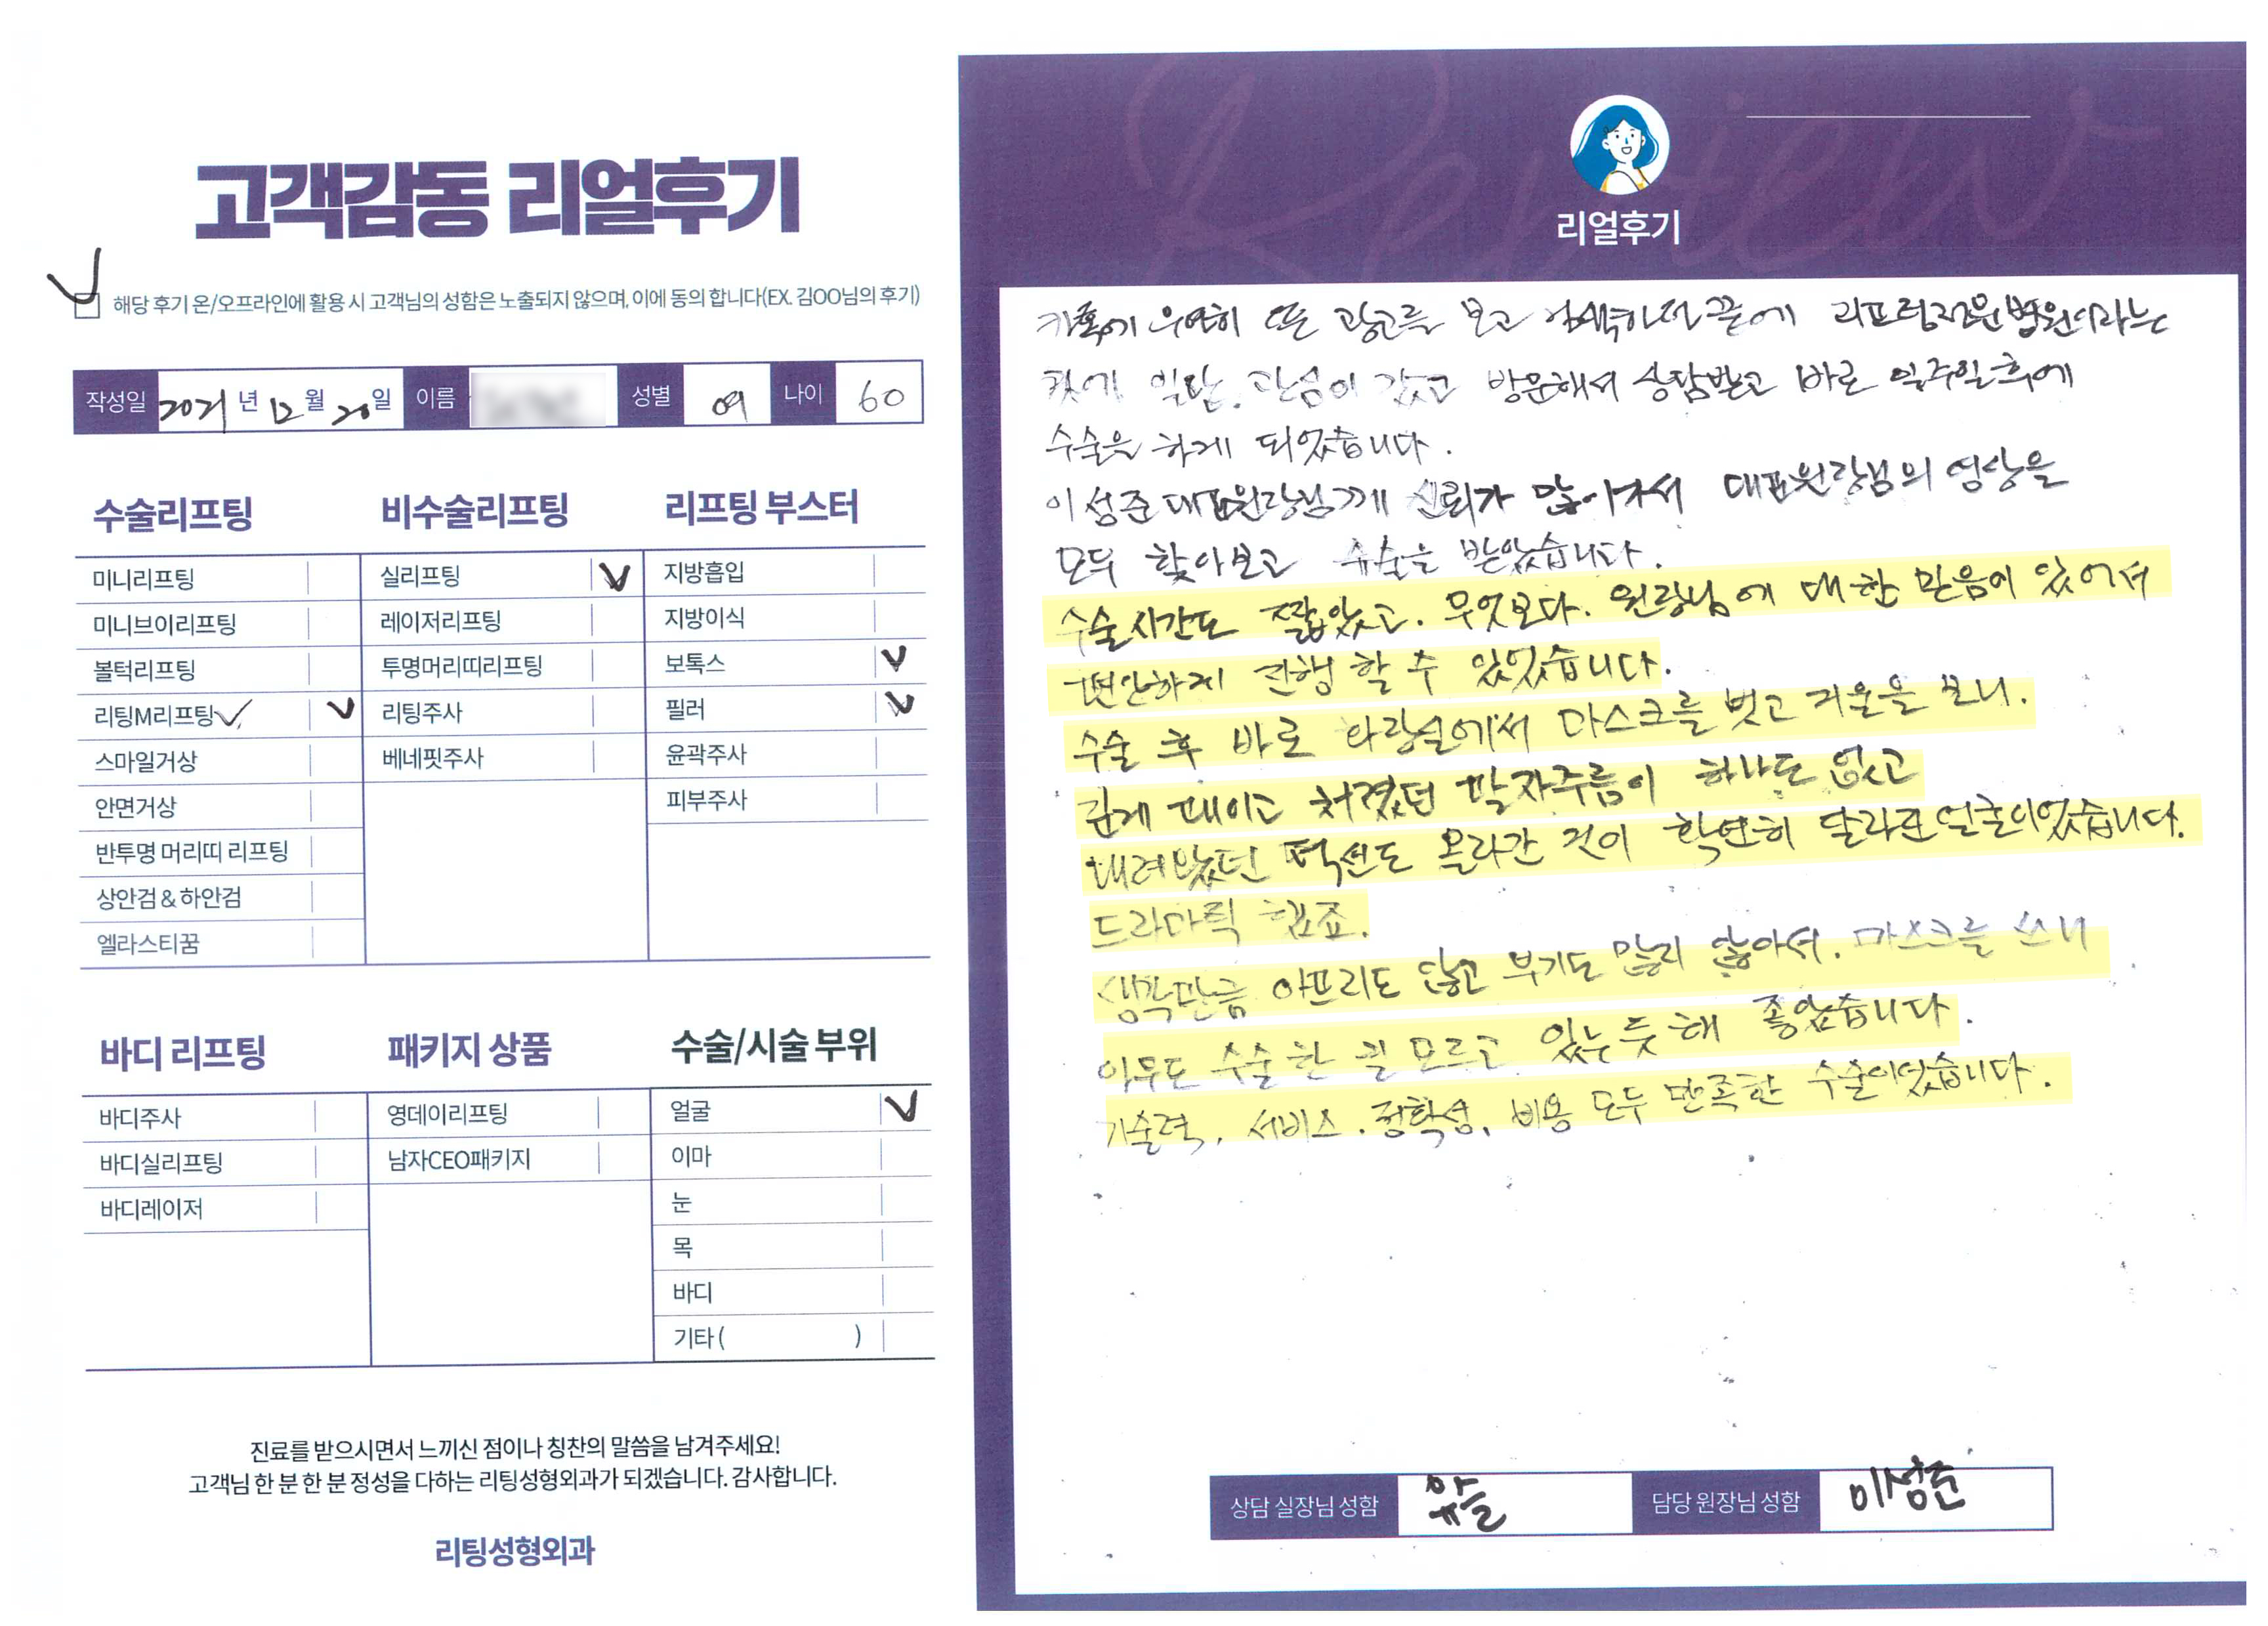 고객감동 리얼후기
해당 후기 온/오프라인에 활용 시 고객님의 성함은 노출되지 않으며, 이에 동의 합니다(EX. 김OO님의 후기)
작성일 2021 년 12 월 20 일 이름 성별 여 나이 60
수술리프팅
미니리프팅
미니브이리프팅
볼턱리프팅
리팅M리프팅
스마일거상
안면거상
반투명 머리띠 리프팅
상안검 & 하안검
엘라스티꿈
비수술리프팅
실리프팅
레이저리프팅
투명머리띠리프팅
리팅주사
베네핏주사
리프팅 부스터
지방흡입
지방이식
보톡스
필러
윤곽주사
피부주사
바디 리프팅
바디주사
바디실리프팅
바디레이저
패키지 상품
영데이리프팅
남자CEO패키지
수술/시술 부위
얼굴
이마
눈
목
바디
기타 ( )
진료를 받으시면서 느끼신 점이나 칭찬의 말씀을 남겨주세요!
고객님 한 분 한 분 정성을 다하는 리팅성형외과가 되겠습니다. 감사합니다.
리팅성형외과
Review
리얼후기
우연히 뜬 광고를 보고 검색하던 끝에
일단 관심이 갔고 방문해서 상담받고 바로 일주일후에
수술을 하게 되었습니다.
이성준 대표원장님께 신뢰가 많이가서 대표원장님의 영상을
모두 찾아보고 수술을 받았습니다.
수술시간도 짧았고. 무엇보다. 원장님에 대한 믿음이 있어서
편안하게 진행 할 수 있었습니다.
수술 후 바로 화장실에서 마스크를 벗고 거울을 보니.
깊게 패이고 처졌던 팔자주름이 하나도 없고
내려왔던 턱선도 올라간 것이 확연히 달라진 얼굴이었습니다.
드라마틱 했죠.
생각만큼 아프지도 않고 부기도 많지 않아서. 마스크를 쓰니
아무도 수술 한 걸 모르고 있는 듯 해 좋았습니다.
기술력, 서비스. 정확성, 비용 모두 만족한 수술이었습니다.
상담 실장님 성함 담당 원장님 성함 이성준